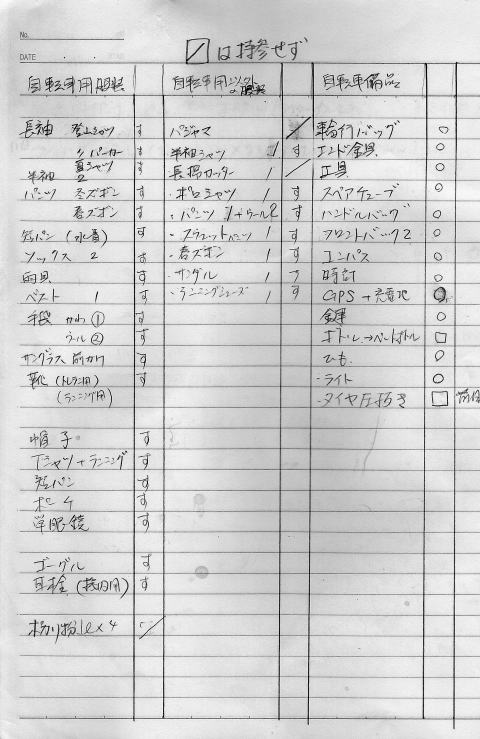 No.
DATE
☑は持参せず
自転車用服装
長袖 登山シャツ す
〃 パーカー す
半袖 夏シャツ 2 す
パンツ 冬ズボン す
春ズボン す
短パン (水着) す
ソックス 2 す
雨具 す
ベスト 1 す
手袋 かわ ① す
ウール ② す
サングラス 前かけ す
靴 (トレラン用) す
(ランニング用)
帽子 す
Tシャツ+ランニング す
短パン す
す
単眼鏡 す
ゴーグル す
耳栓 (機内用) す
粉 1ℓ×4
自転車用以外の服装
パジャマ
半袖シャツ 1 す
長袖カッター 1
・ポロシャツ 1 す
・パンツ 1+ウール2 す
・スウェットパンツ 1 す
・春ズボン す
・サンダル 1
・ランニングシューズ 1 す
自転車備品
輪行バッグ ○
エンド金具 ○
工具 ○
スペアチューブ ○
ハンドルバッグ ○
フロントバック2 ○
コンパス ○
時計 ○
GPS+充電池
○
ボトル→ペットボトル □
ひも ○
・ライト ○
・タイヤ圧 □